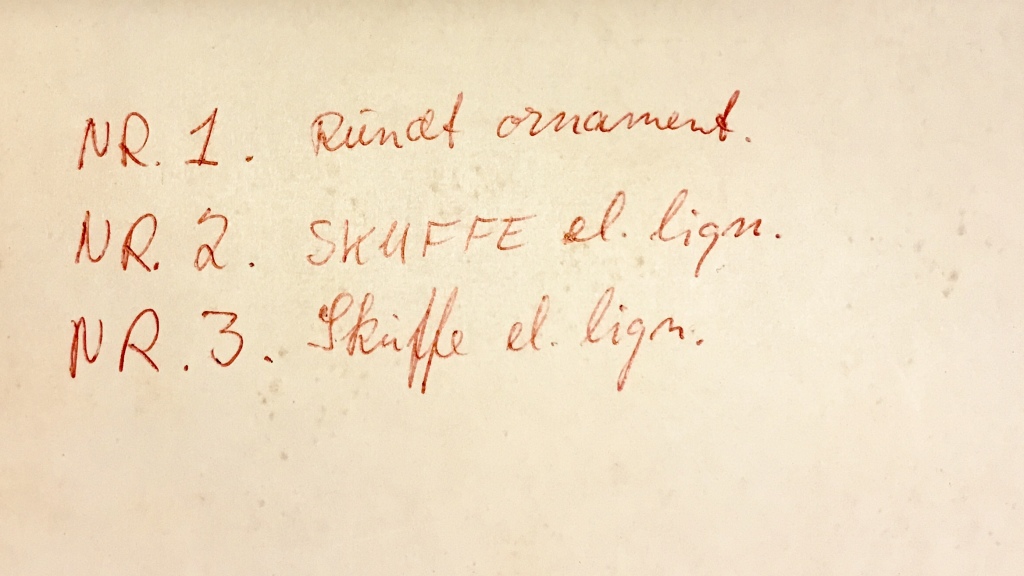 NR. 1. Rundt ornament.
NR. 2. SKUFFE el. lign.
NR. 3. Skuffe el. lign.